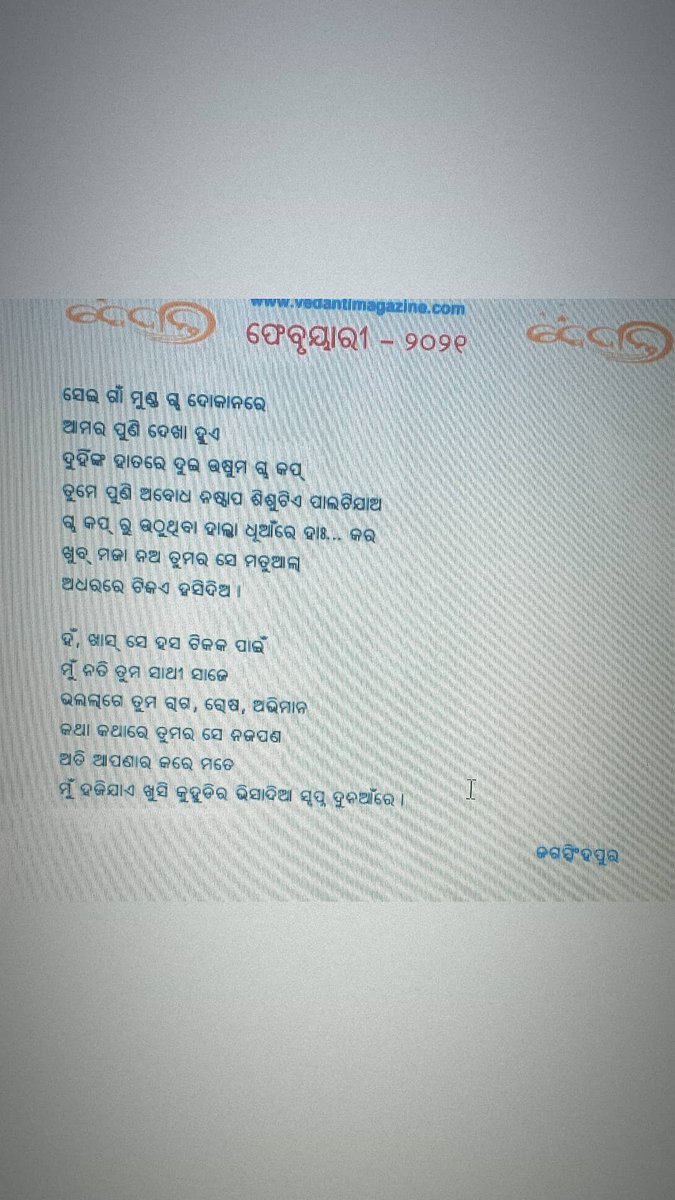 www.vedantimagazine.com
ଫେବୃୟାରୀ – ୨୦୨୧
ସେଇ ଗାଁ ମୁଣ୍ଡ ଚା ଦୋକାନରେ
ଆମର ପୁଣି ଦେଖା ହୁଏ
ଦୁହିଁଙ୍କ ହାତରେ ଦୁଇ ଉଷୁମ ଚା କପ୍
ତୁମେ ପୁଣି ଅବୋଧ ନିଷ୍ପାପ ଶିଶୁଟିଏ ପାଲଟିଯାଅ
ଚା କପ୍ ରୁ ଉଠୁଥିବା ହାଲ୍କା ଧୂଆଁରେ ହାଃ... କର
ଖୁବ୍ ମଜା ନିଅ ତୁମର ସେ ମତୁଆଲା
ଅଧରରେ ଟିକିଏ ହସିଦିଅ ।
ହଁ, ଖାସ୍ ସେ ହସ ଟିକକ ପାଇଁ
ମୁଁ ନିତି ତୁମ ସାଥୀ ସାଜେ
ଭଲଲାଗେ ତୁମ ରାଗ, ରୋଷ, ଅଭିମାନ
କଥା କଥାରେ ତୁମର ସେ ନିଜପଣ
ଅତି ଆପଣାର କରେ ମତେ
ମୁଁ ହଜିଯାଏ ଖୁସି କୁହୁଡିର ଭିସାଦିଆ ସ୍ୱପ୍ନ ଦୁନିଆଁରେ ।
ଜଗତ୍ସିଂହପୁର